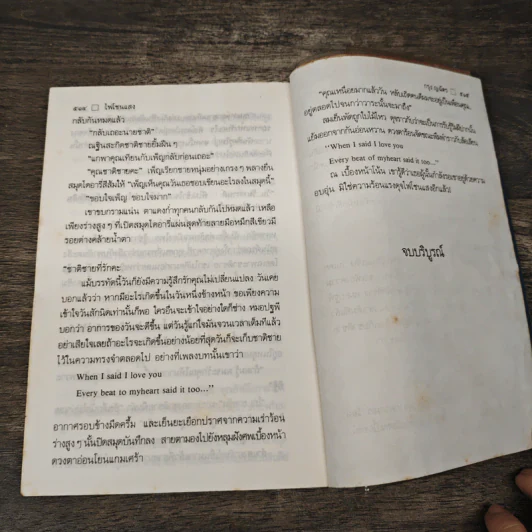 ๕๘๔ □ ไฟโชนแสง
กลับกันหมดแล้ว
"กลับเถอะนายชาติ"
ณฐินสะกิดชาติชายยิ้มฝืน ๆ
"แกพาคุณเทียนกับเพ็ญกลับก่อนเถอะ"
"คุณชาติชายคะ" เพ็ญเรียกชายหนุ่มอย่างเกรง ๆ พลางยื่น
สมุดไดอารี่สีส้มให้ "เพ็ญเห็นคุณวันเธอชอบเขียนอะไรลงในสมุดนี้"
"ขอบใจเพ็ญ ขอบใจมาก"
เขาขบกรามแน่น ตาแดงก่ำทุกคนกลับกันไปหมดแล้ว เหลือ
เพียงร่างสูง ๆ ที่เปิดสมุดไดอารี่แผ่นสุดท้ายลายมือหมึกสีเขียวมี
รอยด่างคล้ายน้ำตา
"ชาติชายที่รักคะ
แม้บรรทัดนี้วันก็ยังมีความรู้สึกรักคุณไม่เปลี่ยนแปลง วันเคย
บอกแล้วว่า หากมีอะไรเกิดขึ้นในวันหนึ่งข้างหน้า ขอเพียงความ
เข้าใจวันสักนิดเท่านั้นก็พอ ใครอื่นจะเข้าใจอย่างใดก็ช่าง หมอปฐพี
บอกว่า อาการของวันจะดีขึ้น แต่วันรู้แก่ใจมันจวนเวลาเต็มทีแล้ว
อย่าเสียใจเลยถ้าอะไรจะเกิดขึ้นอย่างน้อยที่สุดวันก็จะเก็บชาติชาย
ไว้ในความทรงจำตลอดไป อย่างที่เพลงบทนั้นเขาว่า
When I said I love you
Every beat to myheart said it too..."
อากาศรอบข้างมืดครึ้ม และเย็นยะเยือกปราศจากความเร่าร้อน
ร่างสูง ๆ นั้นปิดสมุดบันทึกลง สายตามองไปยังหลุมฝังศพเบื้องหน้า
ดวงตาอ่อนโยนแกมเศร้า
กฤษณา □ ๕๘๕
"คุณเหนื่อยมากแล้ววัน หลับเถิดคนดีผมจะอยู่เป็นเพื่อนคุณ
อยู่ตลอดไปจนกว่าวาระนั้นจะมาถึง"
"When I said I love you
Every beat of myheart said it too..."
ณ เบื้องหน้าโน้น
อบอุ่น มิใช่ความร้อนแรงดุจไฟโชนแสงอีกแล้ว!
จบบริบูรณ์